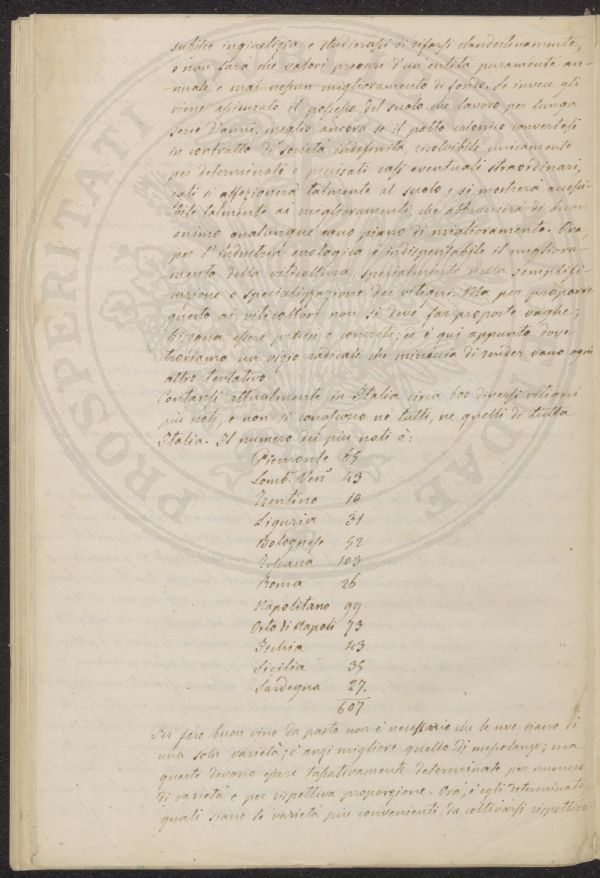 subite ingiustizia e studierassi di rifarsi clandestinamente,
e non fara che valori precari d'un entità puramente an-
-nuale e mai nessun miglioramento di fondo. Se invece gli
viene assicurato il possesso del suolo che lavora per lunga
serie d'anni, meglio ancora se il patto colonico convertesi
in contratto di società indefinita, risolvibile unicamente
per determinati e precisati casi eventuali straordinari,
così si affezionerà talmente al suolo e si mostrerà accessi-
bile talmente ai miglioramenti, che abbraccierà di buon
animo qualunque equo piano di miglioramento. Ora,
per l'industria enologica è indispensabile il migliora-
mento della viticoltura, specialmente nella semplifi-
cazione e specializzazione dei vitigni. Ma per proporre
questo ai viticoltori non si deve far proposte vaghe;
bisogna essere precisi e concreti; ed è qui appunto dove
troviamo un vizio radicale che minaccia di render vano ogni
altro tentativo
Contansi attualmente in Italia circa 600 diversi vitigni
più noti, e non si conoscono nè tutti, ne quelli di tutta
Italia. Il numero dei più noti è:
Piemonte 55
Lomb. Ven. 43
Trentino 10
Liguria 31
Bolognese 52
Toscana 103
Roma 26
Napolitano 99
Orto di Napoli 73
Ischia 43
Sicilia 35
Sardegna 27.
607
Per fare buon vino da pasto non è necessario che le uve siano di
una sola varietà; è anzi migliore quello di mescolanze; ma
queste devono essere tassativamente determinate per numero
di varietà e per rispettiva proporzione. Ora, è egli determinato
quali siano le varietà più convenienti da coltivarsi rispettiva-
PROSPERITATI